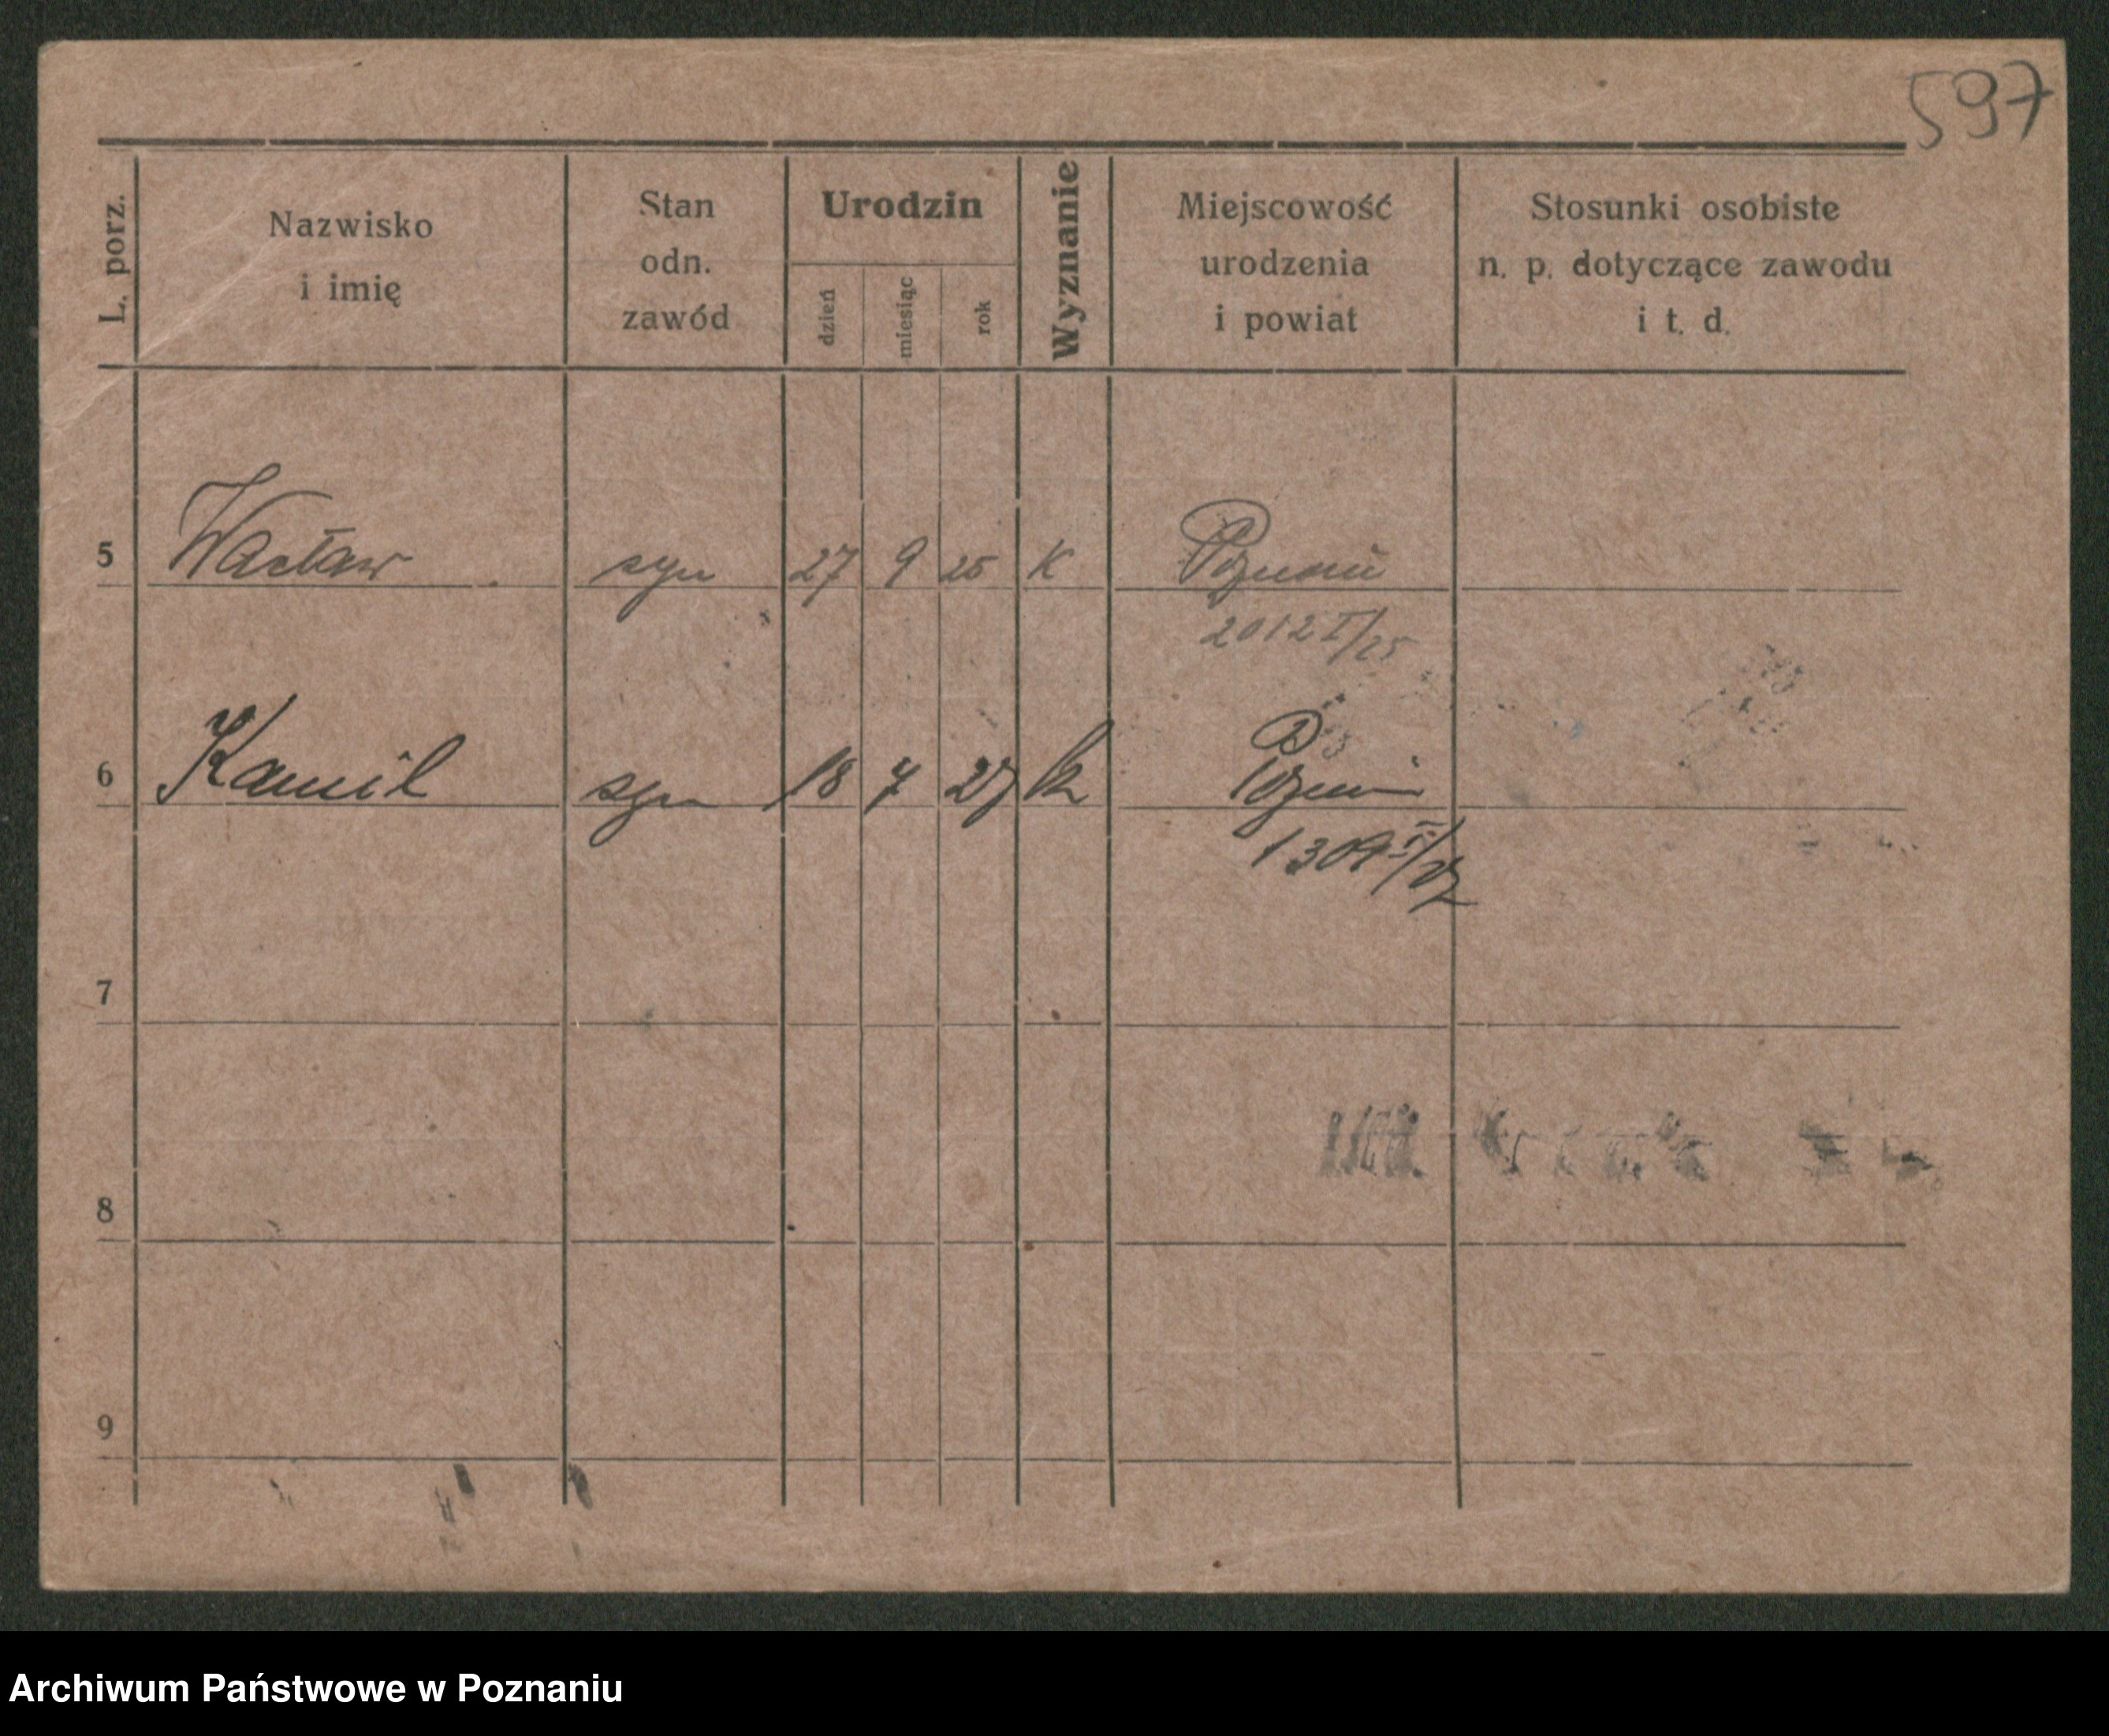 597
L. porz.
Nazwisko
i imię
Stan
odn.
zawód
Urodzin
dzień
miesiąc
rok
Wyznanie
Miejscowość
urodzenia
i powiat
Stosunki osobiste
n. p. dotyczące zawodu
i t. d.
5 Wacław syn 27 9 25 K Poznań
2012 I/25
6 Kamil syn 18 7 27 k Poznań
1309 I/27
7
8
9
Archiwum Państwowe w Poznaniu